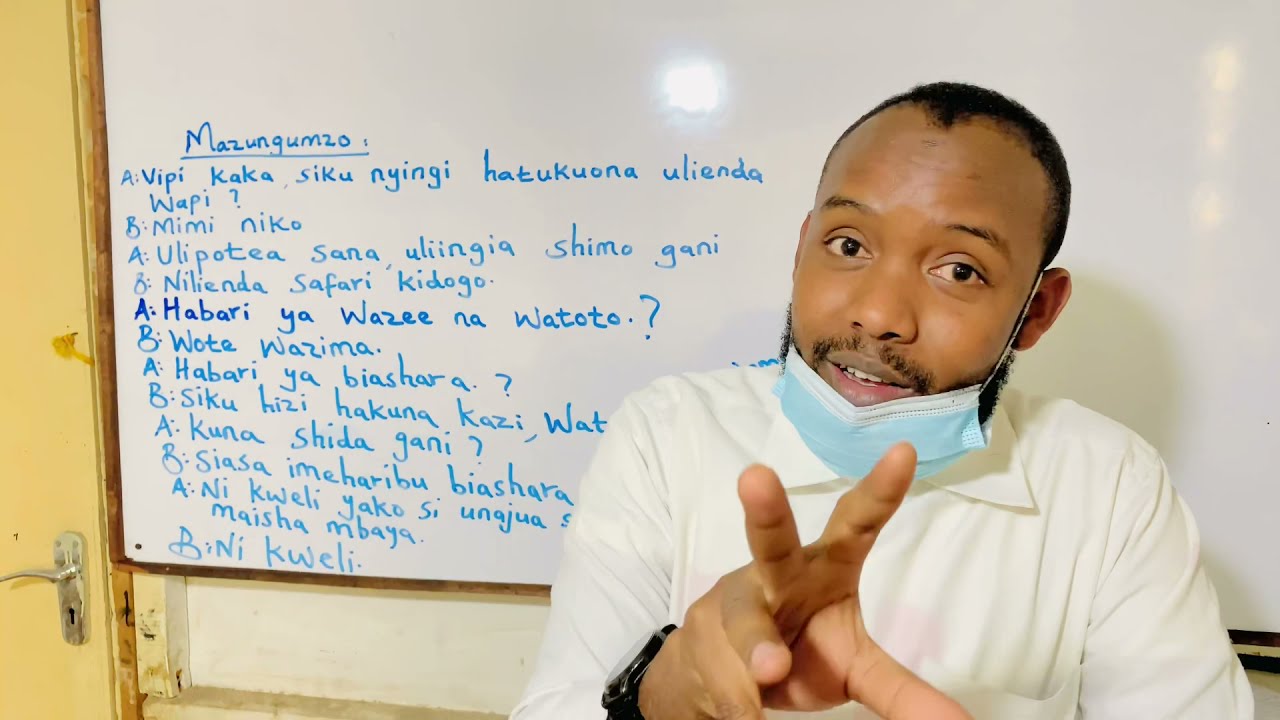 Mazungumzo:
A: Vipi kaka, siku nyingi hatukuona ulienda
wapi?
B: Mimi niko
A: Ulipotea sana, uliingia shimo gani
B: Nilienda safari kidogo.
A: Habari ya wazee na watoto.?
B: Wote wazima.
A: Habari ya biashara.?
B: Siku hizi hakuna kazi,
A: Kuna shida gani?
B: Siasa imeharibu biashara
A: Ni kweli yako si unajua
maisha mbaya.
B: Ni kweli.